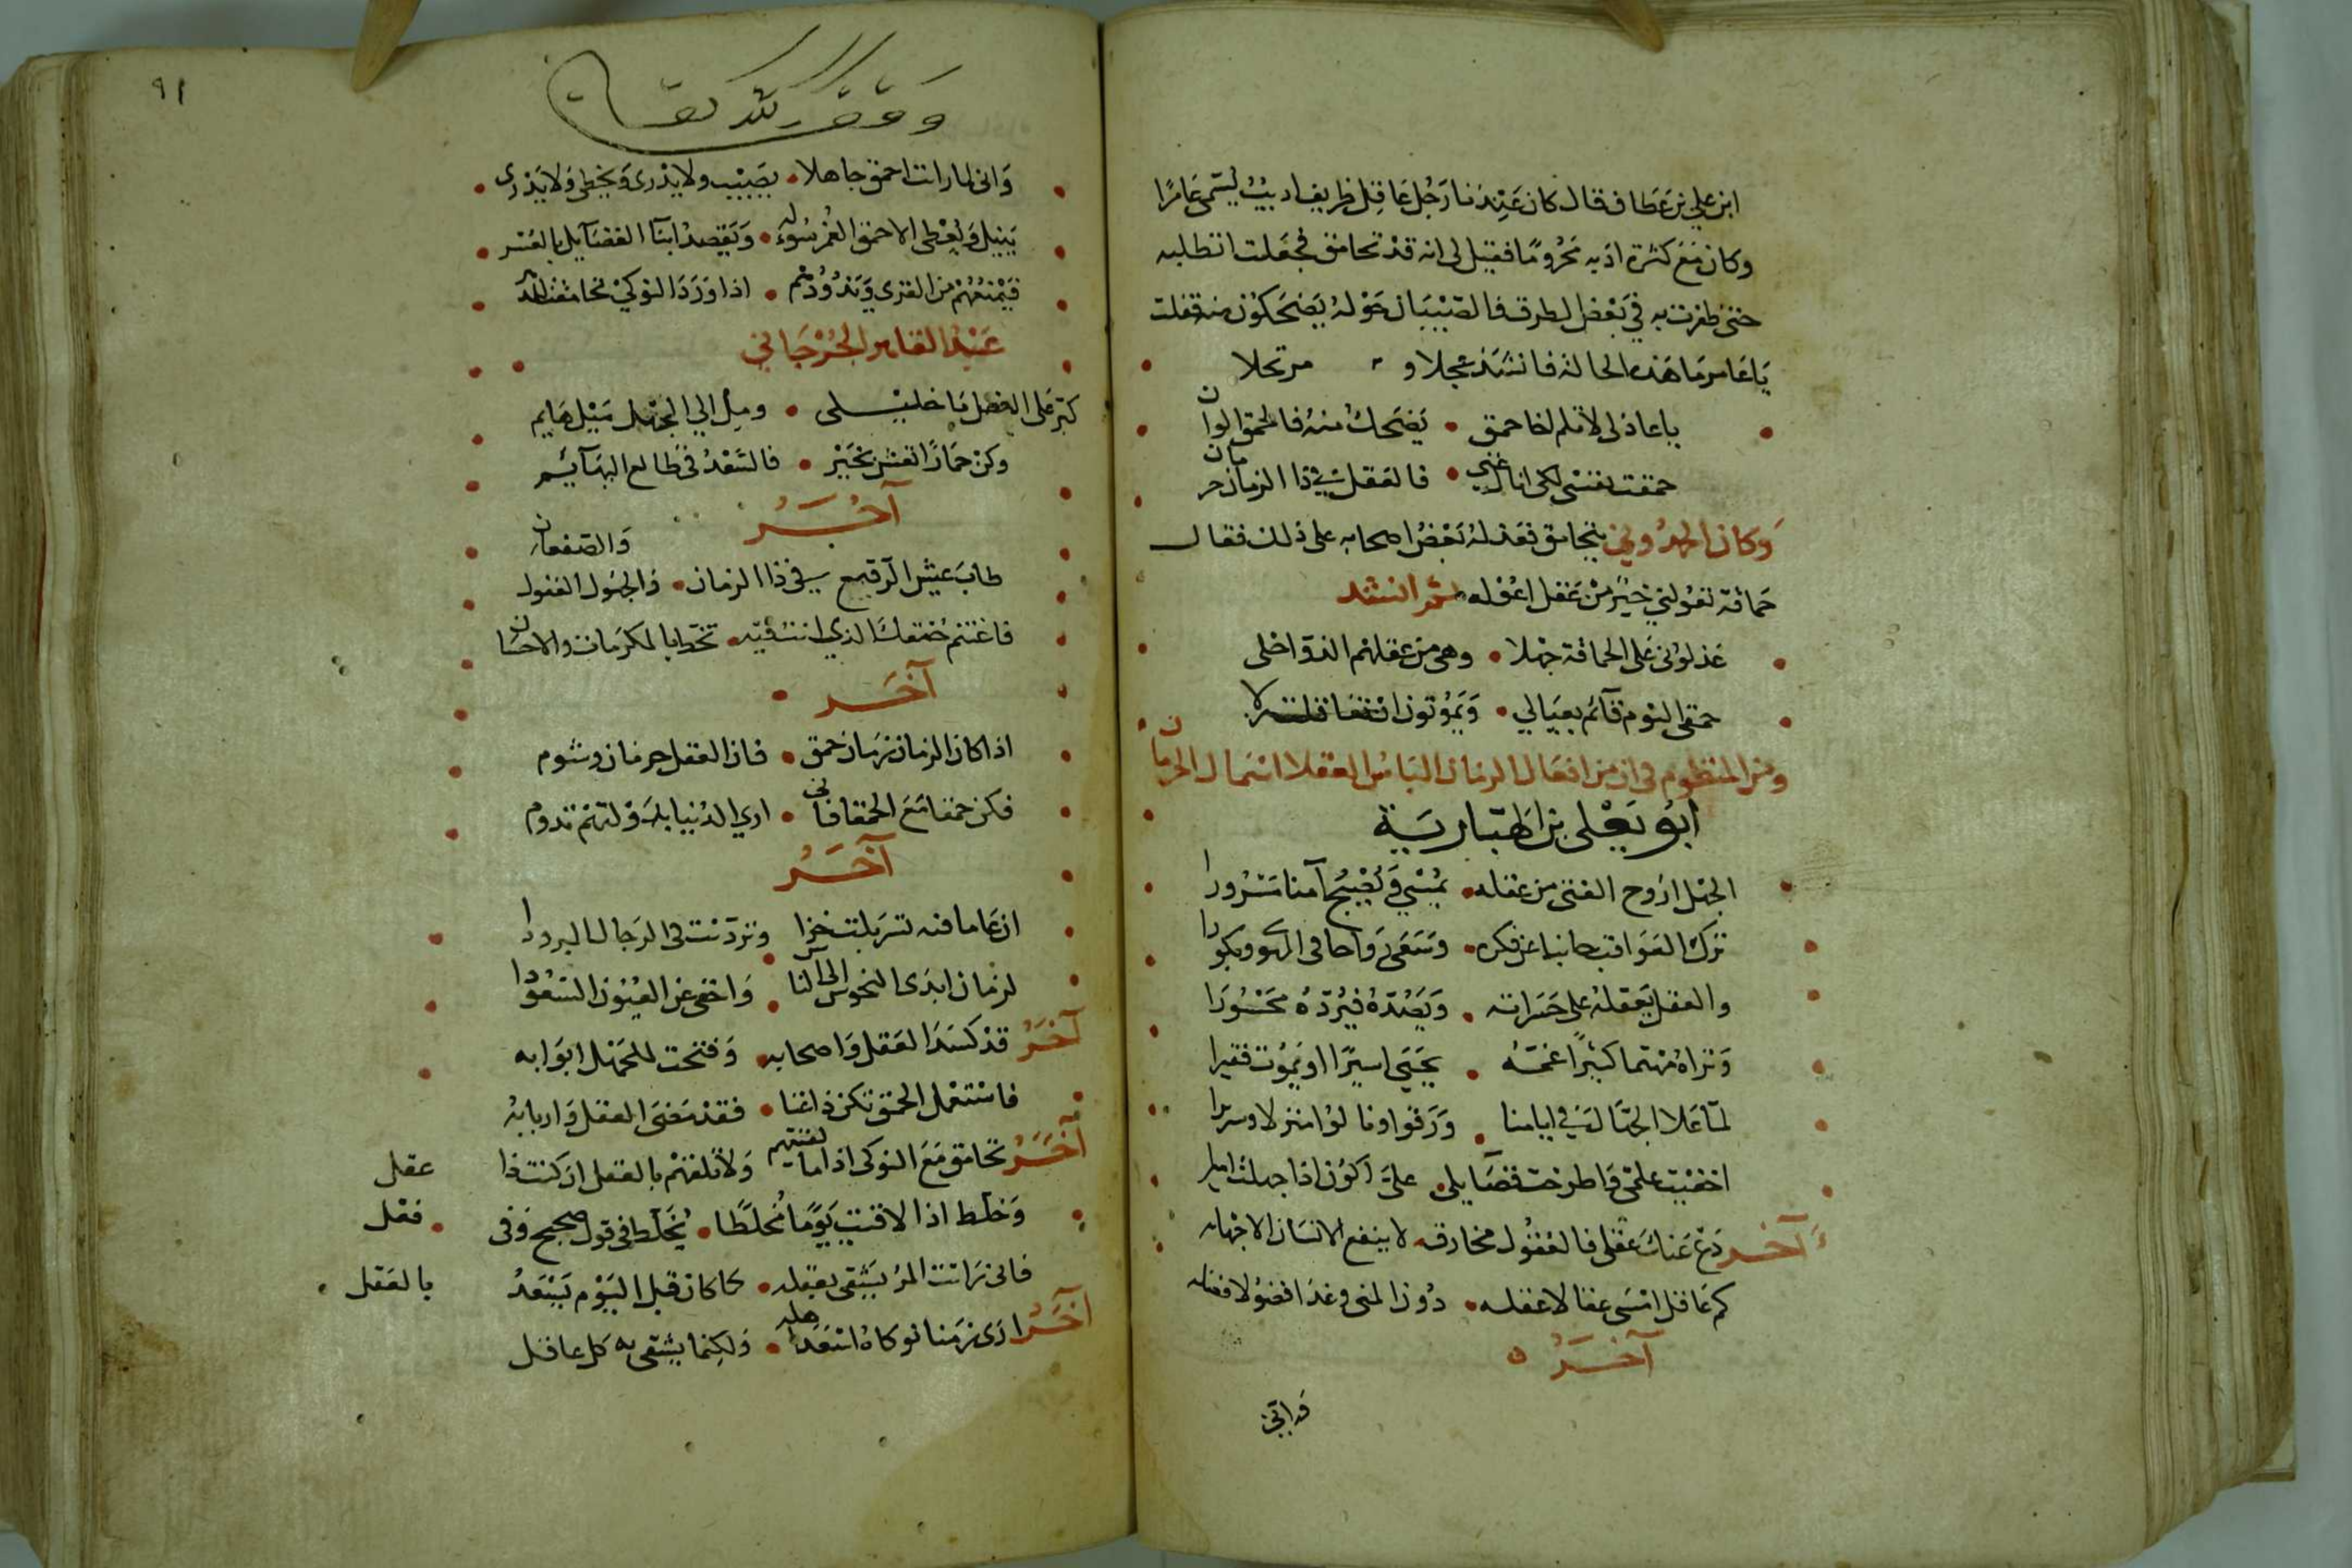 ابن علي بن عطاف قال كان عندنا رجل عاقل ظريف اديب يسمى عامرا
وكان مع كثرة ادبه محروما فقيل لى انه قد تحامق فجعلت اتطلبه
حتى ظفرت به في بعض الطرق فالصبيان حوله يضحكون منه فقلت
ياعامر ما هذه الحالة فانشد عجلا و مرتجلا
ياعاذلى لا تلم اخا حمق • يضحك منه فالحمق الوان
حمقت نفسى لكى انال غنى • فالعقل في ذا الزمان حرمان
وكان يتحامق فعذله بعض اصحابه على ذلك فقال
حماقة تعولني خير من عقل اعوله ثم انشد
عذلوني على الحماقة جهلا • وهى من عقلهم الذ واحلى
حمقى اليوم قائم بعيالي • ويموتون ان
ومن المنظوم فى ان من افعال الزمان الباس العقلا اسمال الحرمان
ابو يعلى بن الهبارية
الجهل اروح الفتى من عقله • يمسي ويصبح آمنا مسرورا
ترك العواقب جانبا عن فكره • وسعى رواحا فى الهوى وبكورا
والعقل يعقله على حسراته • ويصده فيرده محسورا
وتراه مهتما كثيرا غمه • يحيى اسيرا او يموت فقيرا
لما علا الجهال في ايامنا • ورقوا ونالوا منزلا وسريرا
اخفيت علمى واطرحت فضايلى • على اكون اذا جهلت اميرا
آخر دع عنك عقلى فالعقول مخارقه لا ينفع الانسان الا جهله
كم عاقل امسى عقالا عقله • دون المنى وغدا فضولا فضله
آخر
وانى
٩١
وقف
وانى لما رات احمق جاهلا • يصيب ولا يدرى ويخطى ولا يدرى
ينيل ويعطى الاحمق الغمر سؤله • ويقصد ابنا الفضايل بالعسر
فيمنعهم من القرى ويذودهم • اذا ورد النوكي
عبد القاهر الجرجاني
كبر على الفضل يا خليلى • ومل الي الجهل ميل هايم
وكن حمارا تعش بخير • فالسعد في طالع البهآئم
آخر
طاب عيش الرقيع في ذا الزمان • والجهول الغفول والصفعان
فاغتنم حمقك الذي انت فيه • تحظ بالمكرمات والاحسان
آخر
اذا كان الزمان زمان حمق • فان العقل حرمان وشوم
فكن حمقا مع الحمقا فانى • اري الدنيا بدولتهم تدوم
آخر
ان عاما فيه تسربلت خزا وتردت فى الرجال البرودا
لزمان ابدى النحوس الى الناس • واخفى عن العيون السعودا
آخر قد كسد العقل واصحابه • وفتحت للجهل ابوابه
فاستعمل الحمق تكن ذا غنا • فقد مضى العقل واربابه
آخر تحامق مع النوكى اذا ما لقيتهم ولا تلقهم بالعقل ان كنت ذا عقل
وخلط اذا لاقيت يوما مخلطا • يخلط في قول صحيح وفى فعل
فانى رايت المرء يشقى بعقله • كما كان قبل اليوم يسعد بالعقل •
آخر ارى زمنا نوكاه اسعد اهله • ولكنما يشقى به كل عاقل